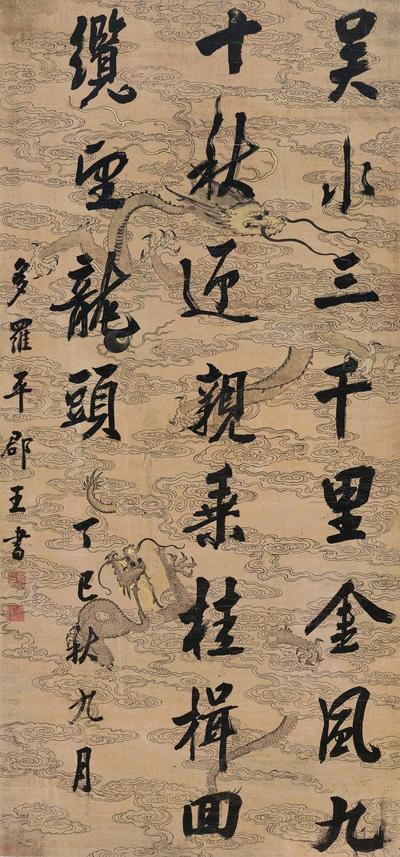 吳水三千里金風九
十秋迎親乘桂楫回
纜望龍頭
丁巳秋九月
多羅平郡王書